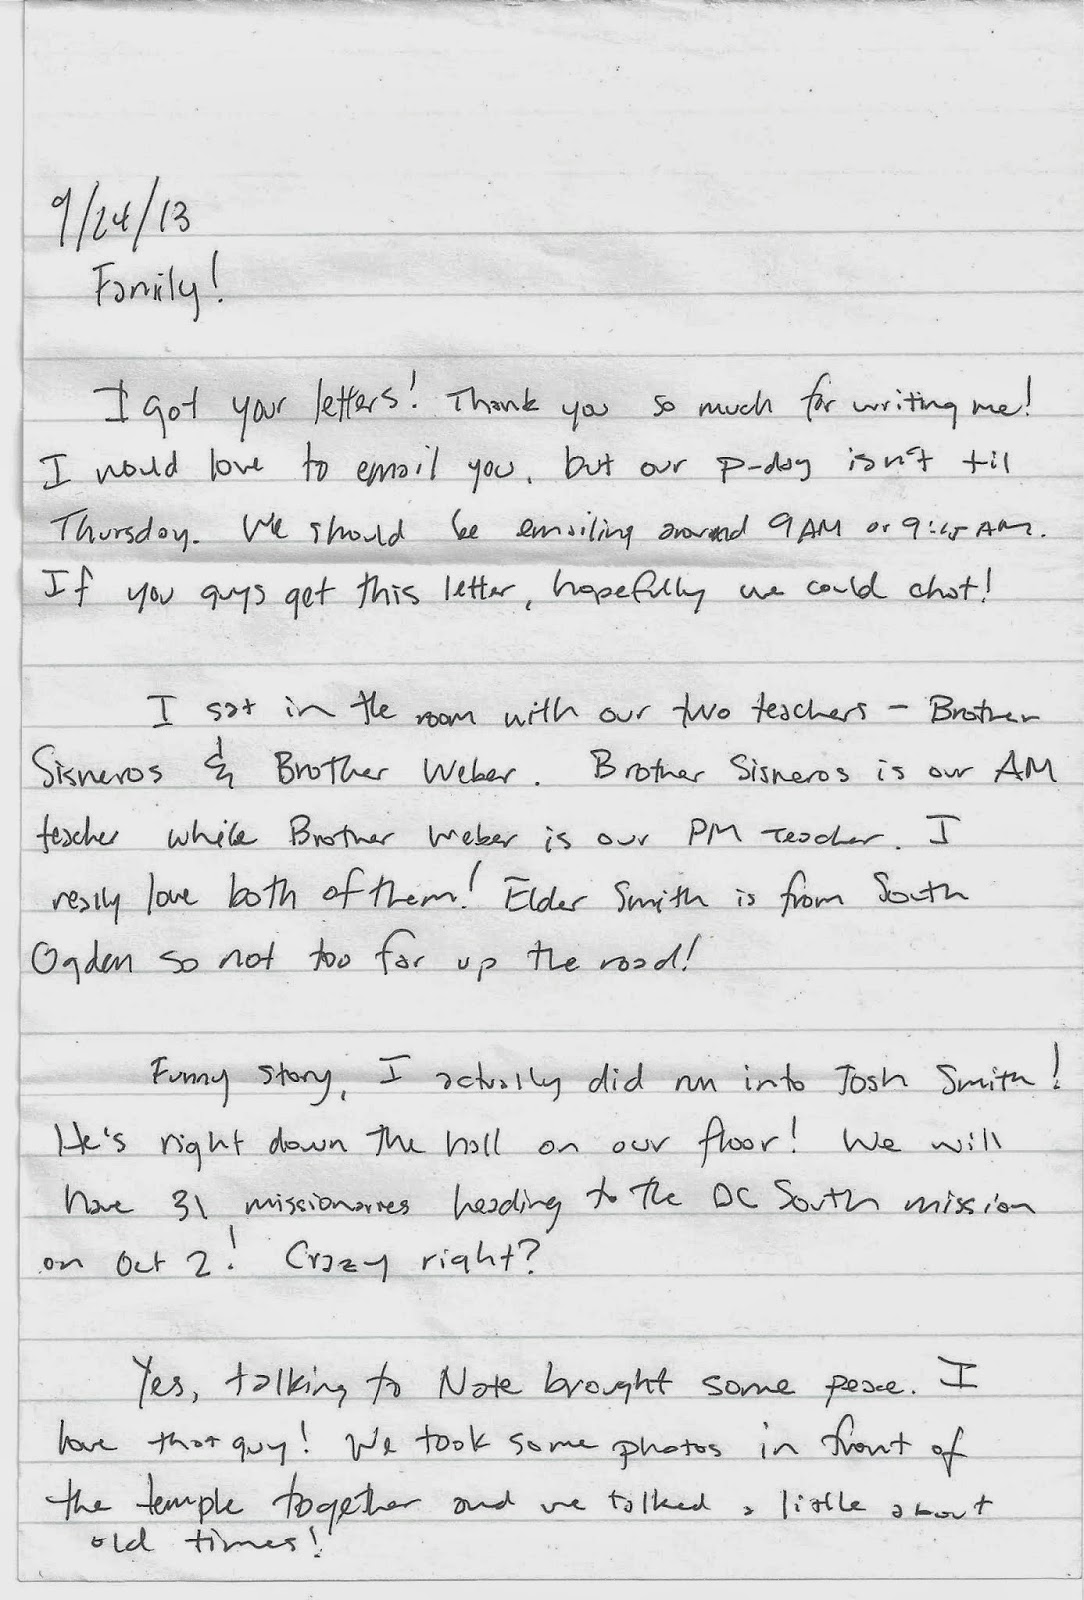 9/24/13
Family!
I got your letters! Thank you so much for writing me!
I would love to email you, but our p-day isn't til
Thursday. We should be emailing around 9 AM or 9:15 AM.
If you guys get this letter, hopefully we could chat!
I sat in the room with our two teachers - Brother
Sisneros & Brother Weber. Brother Sisneros is our AM
teacher while Brother Weber is our PM teacher. I
really love both of them! Elder Smith is from South
Ogden so not too far up the road!
Funny story, I actually did run into Josh Smith!
He's right down the hall on our floor! We will
have 31 missionaries heading to the DC South mission
on Oct 2! Crazy right?
Yes, talking to Nate brought some peace. I
love that guy! We took some photos in front of
the temple together and we talked a little about
old times!